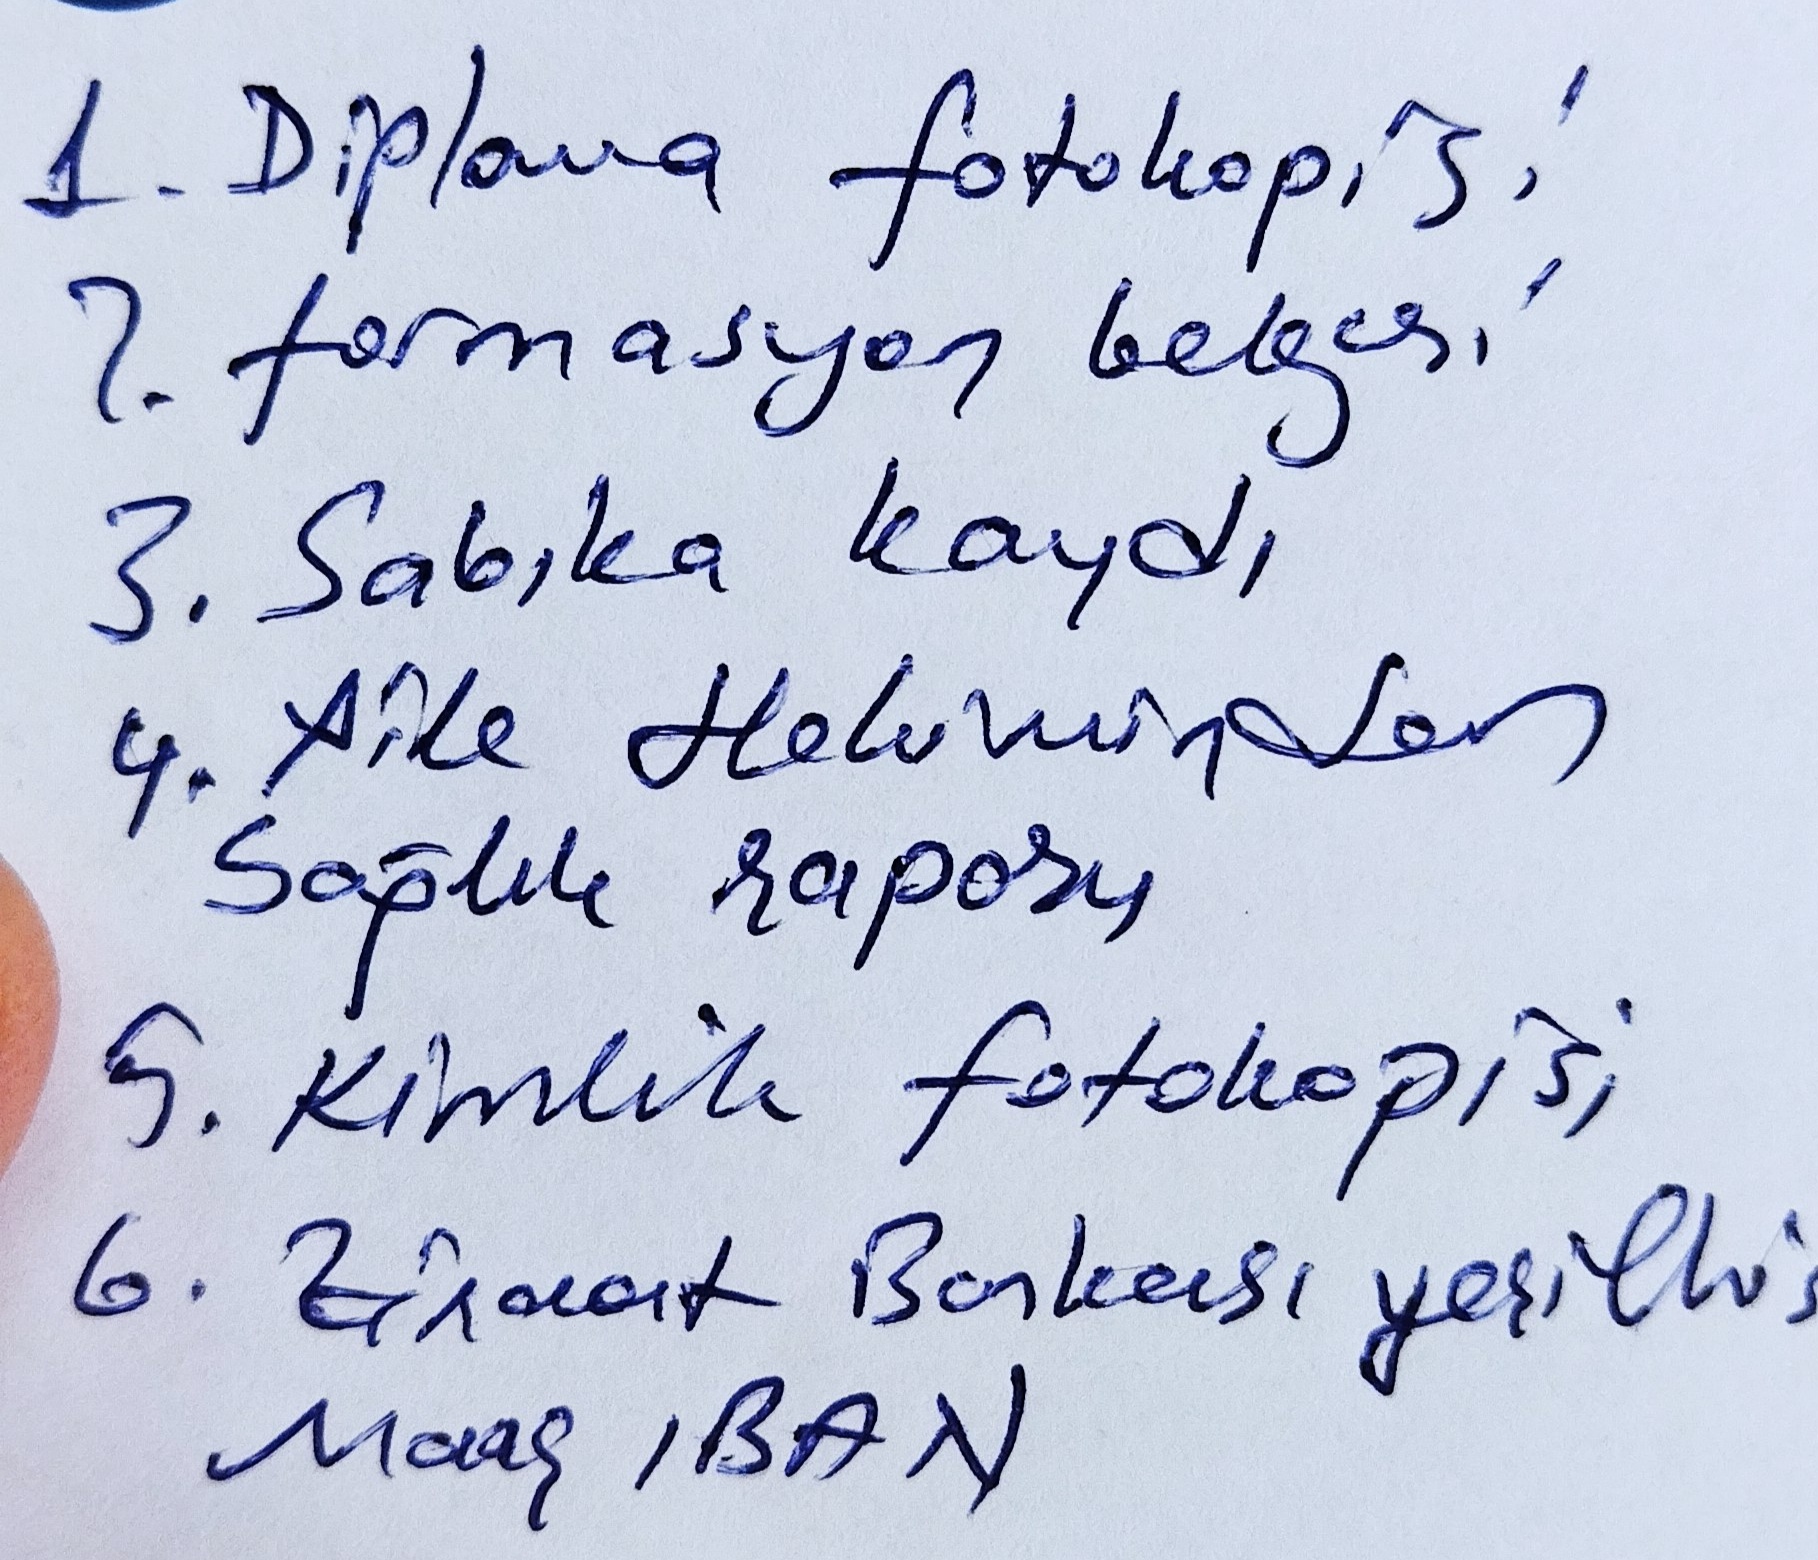 1. Diploma fotokopisi
2. formasyon belgesi
3. Sabıka kaydı
4. Aile Hekiminden
Sağlık raporu
5. Kimlik fotokopisi
6. Ziraat Bankası
Maaş IBAN